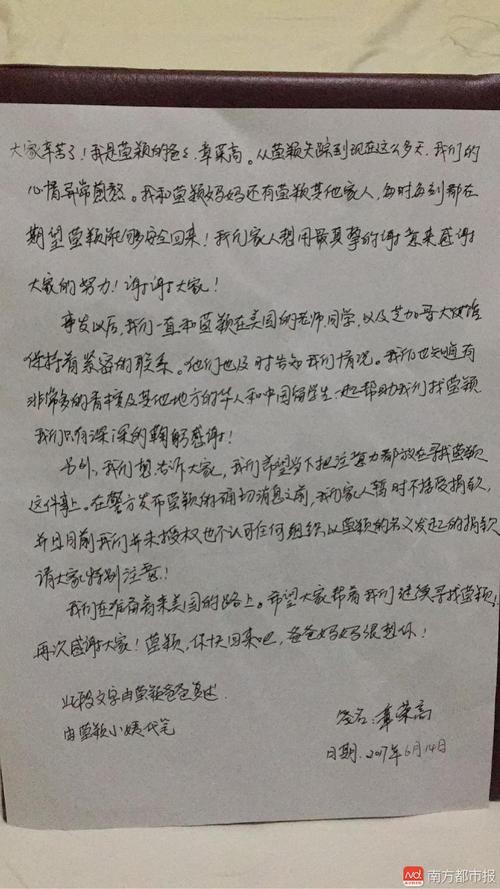 大家辛苦了！我是莹颖的爸爸，章荣高。从莹颖失踪到现在这么多天，我们的
心情异常煎熬。我和莹颖妈妈还有莹颖其他家人，每时每刻都在
期望莹颖能够安全回来！我们家人想用最真挚的谢意来感谢
大家的努力！谢谢大家！
事发以后，我们一直和莹颖在美国的老师同学，以及芝加哥大使馆
保持着紧密的联系。他们也及时告知我们情况。我们也知道有
非常多的香槟及其他地方的华人和中国留学生一起帮助我们找莹颖
我们只有深深的鞠躬感谢！
另外，我们想告诉大家，我们希望当下把注意力都放在寻找莹颖
这件事上。在警方发布莹颖的确切消息之前，我们家人暂时不接受捐款，
并且目前我们并未授权也不认可任何组织以莹颖的名义发起的捐款
请大家特别注意！
我们在准备着来美国的路上。希望大家帮着我们继续寻找莹颖！
再次感谢大家！莹颖，你快回来吧，爸爸妈妈很想你！
此段文字由莹颖爸爸复述
由莹颖小姨代笔
签名：章荣高
日期：2017年6月14日
南方都市报